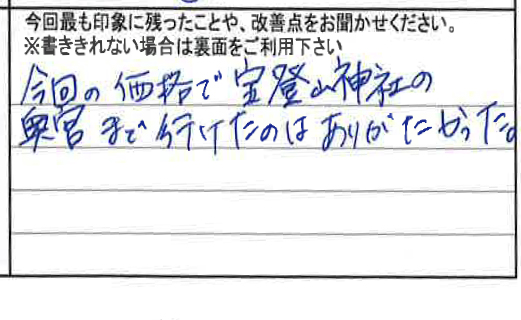 今回最も印象に残ったことや、改善点をお聞かせください。
※書ききれない場合は裏面をご利用下さい
今回の価格で宝登山神社の
奥宮まで行けたのはありがたかった。